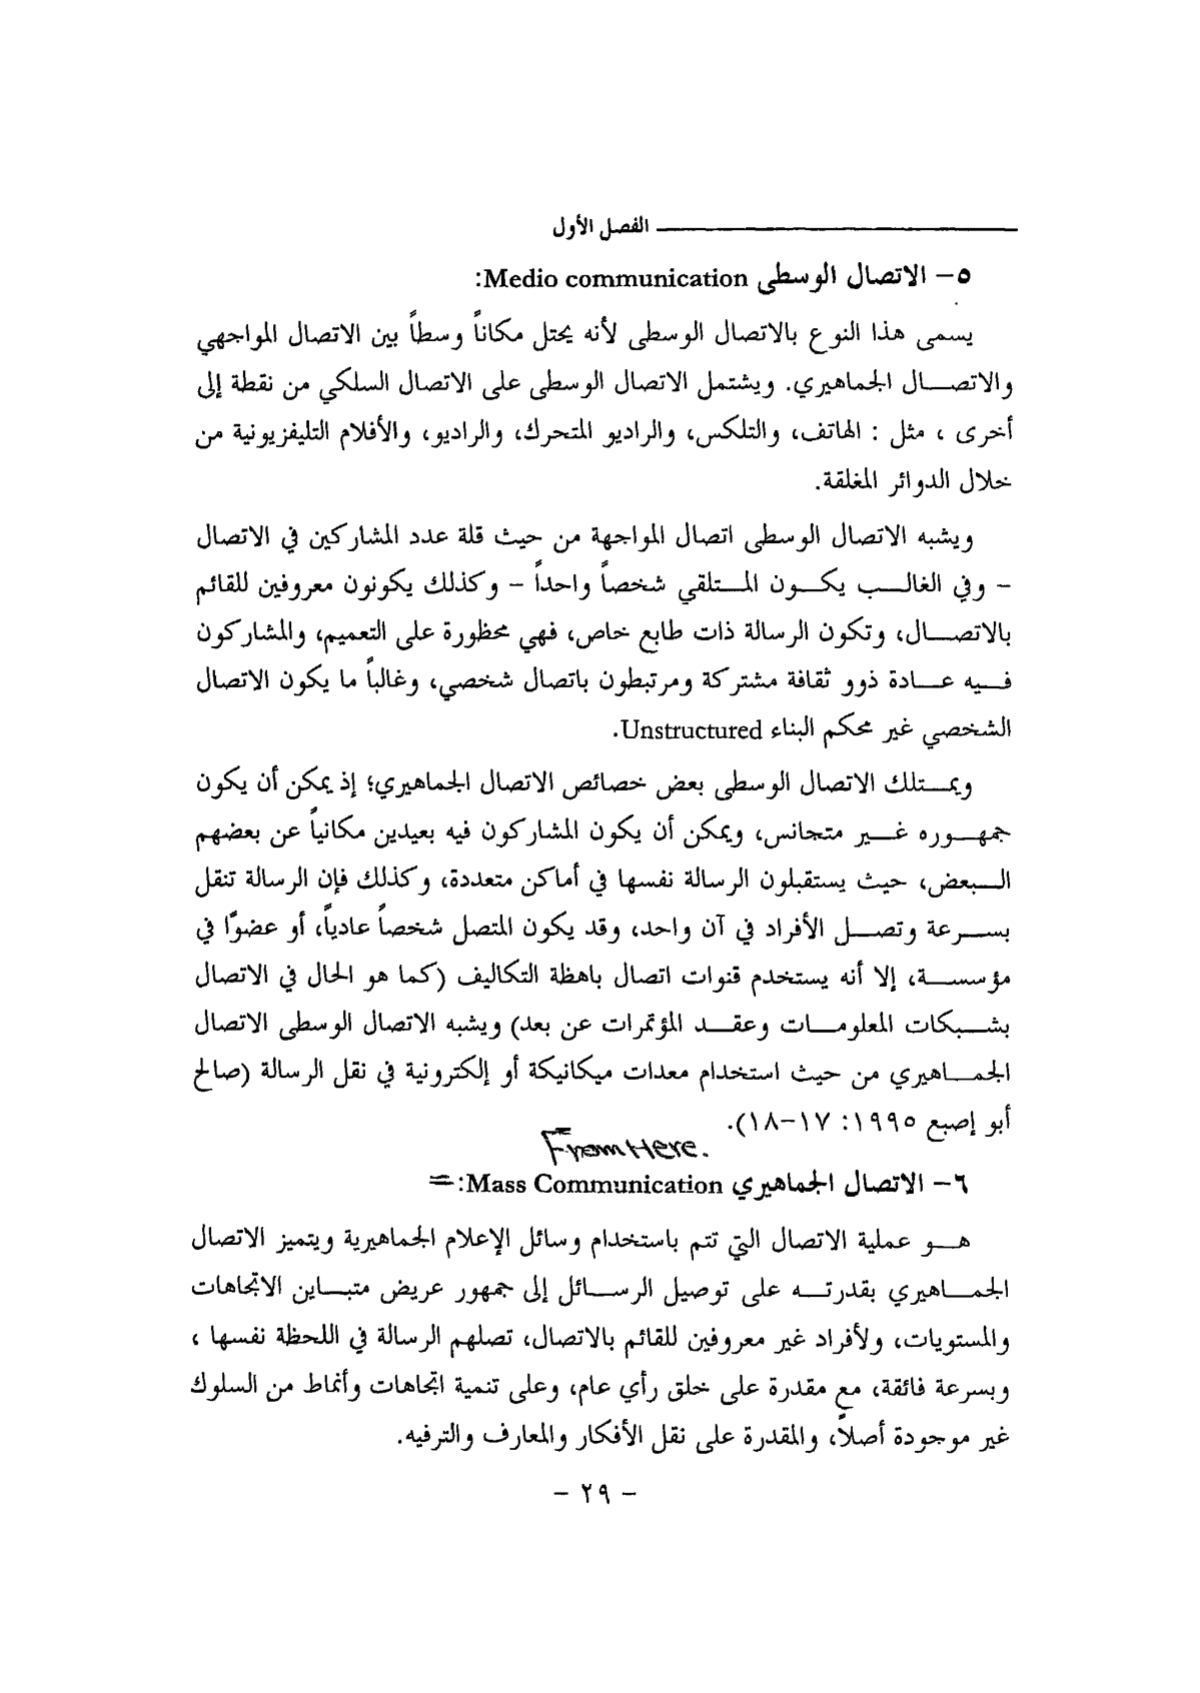 الفصل الأول
٥- الاتصال الوسطى Medio communication:
يسمى هذا النوع بالاتصال الوسطى لأنه يحتل مكاناً وسطاً بين الاتصال المواجهي
والاتصال الجماهيري. ويشتمل الاتصال الوسطى على الاتصال السلكي من نقطة إلى
أخرى ، مثل : الهاتف، والتلكس، والراديو المتحرك، والراديو، والأفلام التليفزيونية من
خلال الدوائر المغلقة.
ويشبه الاتصال الوسطى اتصال المواجهة من حيث قلة عدد المشاركين في الاتصال
- وفي الغالب يكون المتلقي شخصاً واحداً - وكذلك يكونون معروفين للقائم
بالاتصال، وتكون الرسالة ذات طابع خاص، فهي محظورة على التعميم، والمشاركون
فيه عادة ذوو ثقافة مشتركة ومرتبطون باتصال شخصي، وغالباً ما يكون الاتصال
الشخصي غير محكم البناء Unstructured.
ويمتلك الاتصال الوسطى بعض خصائص الاتصال الجماهيري؛ إذ يمكن أن يكون
جمهوره غير متجانس، ويمكن أن يكون المشاركون فيه بعيدين مكانياً عن بعضهم
البعض، حيث يستقبلون الرسالة نفسها في أماكن متعددة، وكذلك فإن الرسالة تنقل
بسرعة وتصل الأفراد في آن واحد، وقد يكون المتصل شخصاً عادياً، أو عضوًا في
مؤسسة، إلا أنه يستخدم قنوات اتصال باهظة التكاليف (كما هو الحال في الاتصال
بشبكات المعلومات وعقد المؤتمرات عن بعد) ويشبه الاتصال الوسطى الاتصال
الجماهيري من حيث استخدام معدات ميكانيكة أو إلكترونية في نقل الرسالة (صالح
أبو إصبع ١٩٩٥: ١٧-١٨).
From Here.
٦- الاتصال الجماهيري Mass Communication:=
هو عملية الاتصال التي تتم باستخدام وسائل الإعلام الجماهيرية ويتميز الاتصال
الجماهيري بقدرته على توصيل الرسائل إلى جمهور عريض متباين الاتجاهات
والمستويات، ولأفراد غير معروفين للقائم بالاتصال، تصلهم الرسالة في اللحظة نفسها ،
وبسرعة فائقة، مع مقدرة على خلق رأي عام، وعلى تنمية اتجاهات وأنماط من السلوك
غير موجودة أصلاً، والمقدرة على نقل الأفكار والمعارف والترفيه.
- ٢٩ -